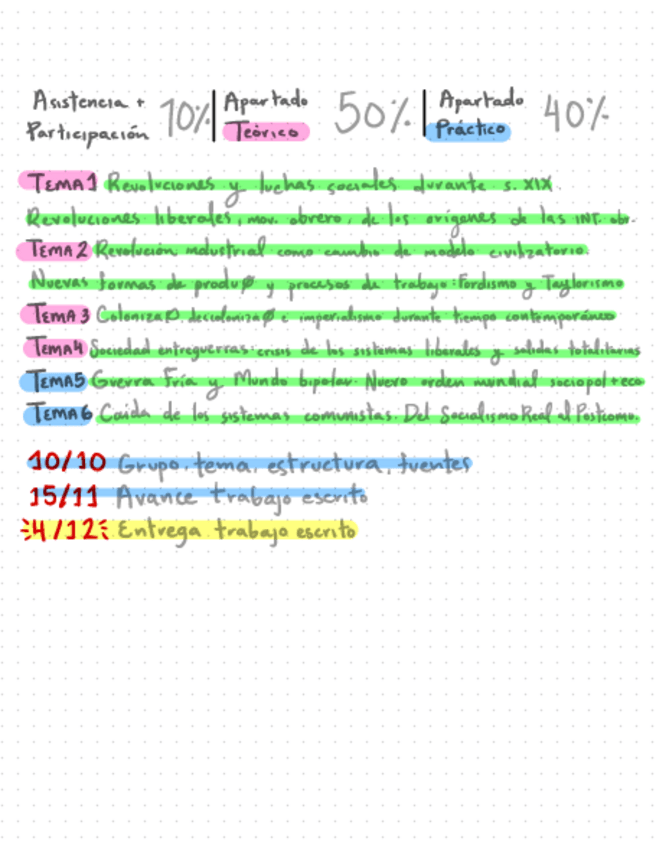 Asistencia + Participación 10% | Apartado Teórico 50% | Apartado Práctico 40%
TEMA 1 Revoluciones y luchas sociales durante s. XIX.
Revoluciones liberales, mov. obrero, de los orígenes de las INT. obr.
TEMA 2 Revolución industrial como cambio de modelo civilizatorio.
Nuevas formas de produø y procesos de trabajo: Fordismo y Taylorismo
TEMA 3 Colonizaø, decolonizaø e imperialismo durante tiempo contemporáneo
TEMA 4 Sociedad entreguerras: crisis de los sistemas liberales y salidas totalitarias
TEMA 5 Guerra Fría y Mundo bipolar. Nuevo orden mundial sociopol + eco
TEMA 6 Caída de los sistemas comunistas. Del Socialismo Real al Postcomo.
10/10 Grupo, tema, estructura, fuentes
15/11 Avance trabajo escrito
4/12 Entrega trabajo escrito